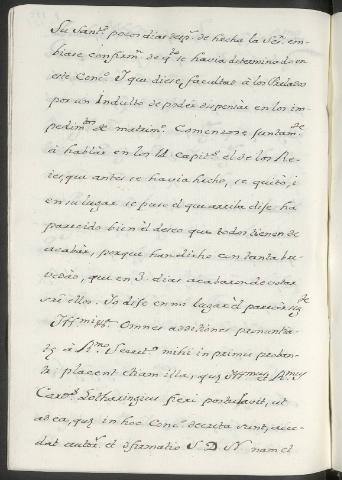 Su Sant.d pocos dias desp.s de hecha la Ses.n em-
biase confirm.n de q.to se havia determinado en
este Conc.o Y que diese facultad à los Prelados
por un Indulto de poder dispensar en los im-
pedim.tos de matrim.o Comenzose juntam.te
à hablàr en los 14 Capit.s el de los Re-
ies, que antes se havia hecho, se quitò, i
en su lugar se puso el que arriba dise ha
parecido bien èl deseo que todos tienen de
acabàr, porque han dicho con tanta bre-
vedad, que en 3. dias acabaron de votar
sobre ellos. Yo dise en mi lugar èl parecer sig.te
Ill.mi Omnes additiones pronuntia-
tę à R.mo Secret.o mihi in primis proban-
tur; placent etiam illa, quę Ill.mus R.mus
Card.s Lotharingius fieri postulavit, ut
ad ea, quę in hoc Conc.o decreta sunt, acce-
dat autor.s et confirmatio S. D. N. nam et